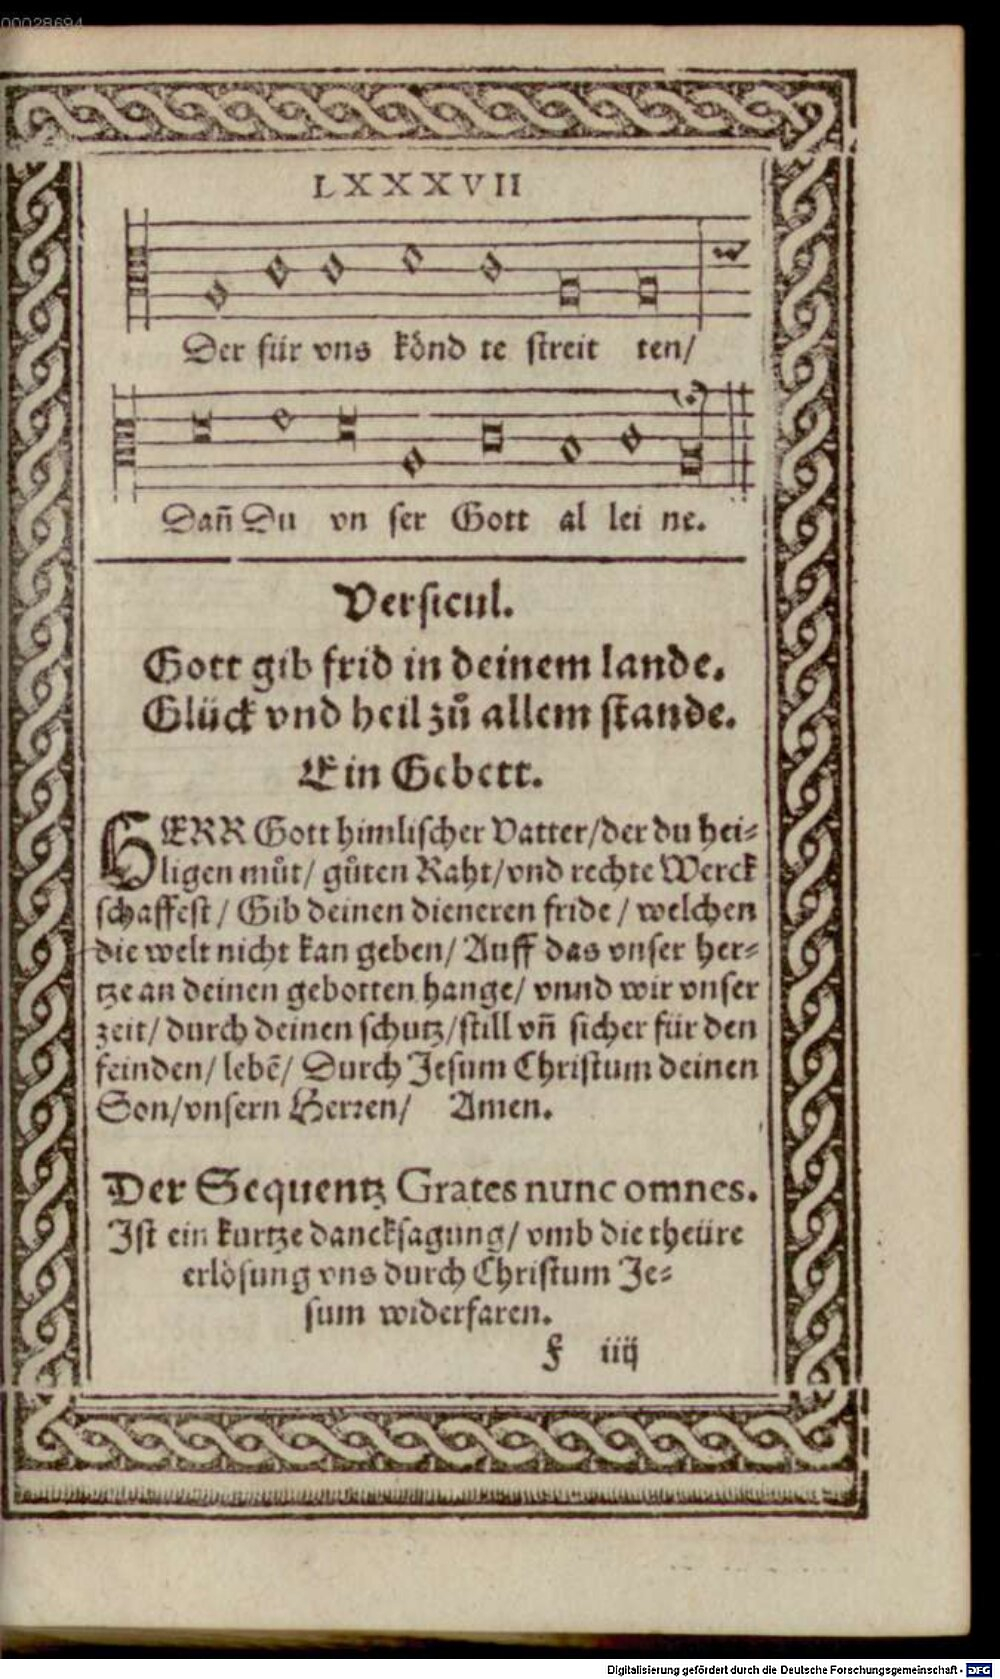 00028694
LXXXVII
Der für vns könd te streit ten/
Dañ Du vn ser Gott al lei ne.
Versicul.
Gott gib frid in deinem lande.
Glück vnd heil zů allem stande.
Ein Gebett.
HERR Gott himlischer Vatter/der du hei⸗
ligen můt/ gůten Raht/vnd rechte Werck
schaffest/ Gib deinen dieneren fride/ welchen
die welt nicht kan geben/ Auff das vnser her⸗
tze an deinen gebotten hange/ vnnd wir vnser
zeit/ durch deinen schutz/still vñ sicher für den
feinden/ lebē/ Durch Jesum Christum deinen
Son/vnsern Herꝛen/ Amen.
Der Sequentz Grates nunc omnes.
Ist ein kurtze dancksagung/ vmb die theüre
erlösung vns durch Christum Je⸗
sum widerfaren.
f iiij
Digitalisierung gefördert durch die Deutsche Forschungsgemeinschaft - DFG